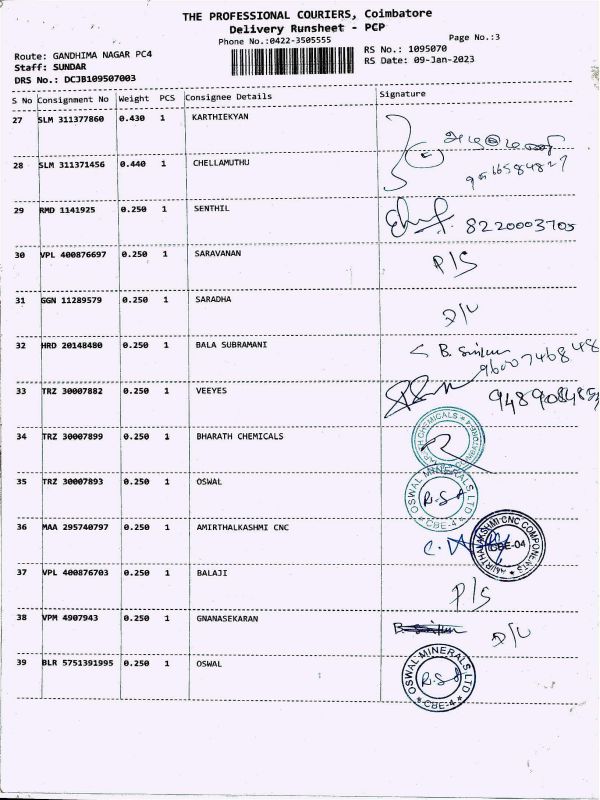 THE PROFESSIONAL COURIERS, Coimbatore
Delivery Runsheet - PCP
Phone No.:0422-3505555
Page No.:3
Route: GANDHIMA NAGAR PC4
RS No.: 1095070
Staff: SUNDAR
RS Date: 09-Jan-2023
DRS No.: DCJB109507003
S No Consignment No Weight PCS Consignee Details Signature
27 SLM 311377860 0.430 1 KARTHIEKYAN
28 SLM 311371456 0.440 1 CHELLAMUTHU
29 RMD 1141925 0.250 1 SENTHIL 8220003705
30 VPL 400876697 0.250 1 SARAVANAN P/S
31 GGN 11289579 0.250 1 SARADHA D/L
32 HRD 20148480 0.250 1 BALA SUBRAMANI 9600746848
33 TRZ 30007882 0.250 1 VEEYES
34 TRZ 30007899 0.250 1 BHARATH CHEMICALS
35 TRZ 30007893 0.250 1 OSWAL OSWAL MINERALS LTD CBE-4
36 MAA 295740797 0.250 1 AMIRTHALKASHMI CNC AMIRTHALAKSHMI CNC COMPONENTS CBE-04
37 VPL 400876703 0.250 1 BALAJI P/S
38 VPM 4907943 0.250 1 GNANASEKARAN D/L
39 BLR 5751391995 0.250 1 OSWAL OSWAL MINERALS LTD CBE-4